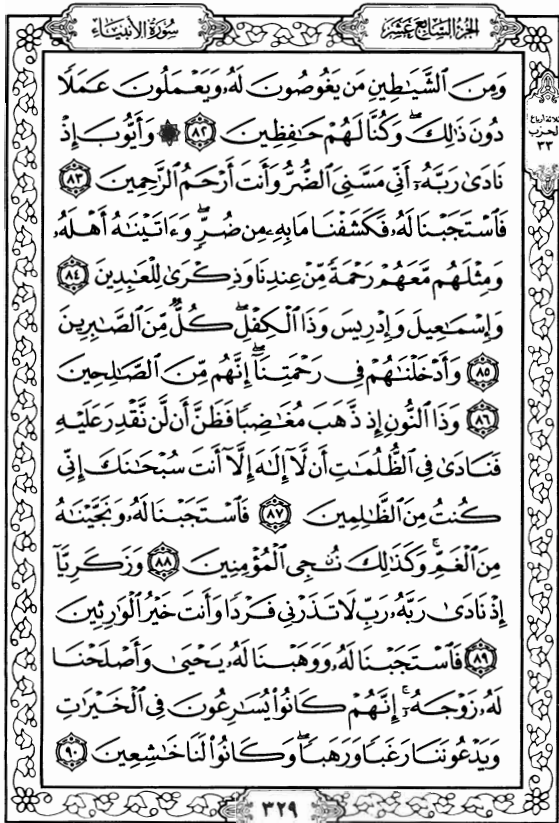 سُورَةُ الأَنبِيَاء
الجُزْءُ السَّابِعَ عَشَرَ
وَمِنَ ٱلشَّيَٰطِينِ مَن يَغُوصُونَ لَهُۥ وَيَعْمَلُونَ عَمَلًا
دُونَ ذَٰلِكَ ۖ وَكُنَّا لَهُمْ حَٰفِظِينَ ٨٢ ۞ وَأَيُّوبَ إِذْ
ثلاثة أرباع
الحزب
٣٣
نَادَىٰ رَبَّهُۥٓ أَنِّي مَسَّنِيَ ٱلضُّرُّ وَأَنتَ أَرْحَمُ ٱلرَّٰحِمِينَ ٨٣
فَٱسْتَجَبْنَا لَهُۥ فَكَشَفْنَا مَا بِهِۦ مِن ضُرٍّ ۖ وَءَاتَيْنَٰهُ أَهْلَهُۥ
وَمِثْلَهُم مَّعَهُمْ رَحْمَةً مِّنْ عِندِنَا وَذِكْرَىٰ لِلْعَٰبِدِينَ ٨٤
وَإِسْمَٰعِيلَ وَإِدْرِيسَ وَذَا ٱلْكِفْلِ ۖ كُلٌّ مِّنَ ٱلصَّٰبِرِينَ
٨٥ وَأَدْخَلْنَٰهُمْ فِي رَحْمَتِنَآ ۖ إِنَّهُم مِّنَ ٱلصَّٰلِحِينَ
٨٦ وَذَا ٱلنُّونِ إِذ ذَّهَبَ مُغَٰضِبًا فَظَنَّ أَن لَّن نَّقْدِرَ عَلَيْهِ
فَنَادَىٰ فِي ٱلظُّلُمَٰتِ أَن لَّآ إِلَٰهَ إِلَّآ أَنتَ سُبْحَٰنَكَ إِنِّي
كُنتُ مِنَ ٱلظَّٰلِمِينَ ٨٧ فَٱسْتَجَبْنَا لَهُۥ وَنَجَّيْنَٰهُ
مِنَ ٱلْغَمِّ ۚ وَكَذَٰلِكَ نُۨجِي ٱلْمُؤْمِنِينَ ٨٨ وَزَكَرِيَّآ
إِذْ نَادَىٰ رَبَّهُۥ رَبِّ لَا تَذَرْنِي فَرْدًا وَأَنتَ خَيْرُ ٱلْوَٰرِثِينَ
٨٩ فَٱسْتَجَبْنَا لَهُۥ وَوَهَبْنَا لَهُۥ يَحْيَىٰ وَأَصْلَحْنَا
لَهُۥ زَوْجَهُۥٓ ۚ إِنَّهُمْ كَانُوا۟ يُسَٰرِعُونَ فِي ٱلْخَيْرَٰتِ
وَيَدْعُونَنَا رَغَبًا وَرَهَبًا ۖ وَكَانُوا۟ لَنَا خَٰشِعِينَ ٩٠
٣٢٩